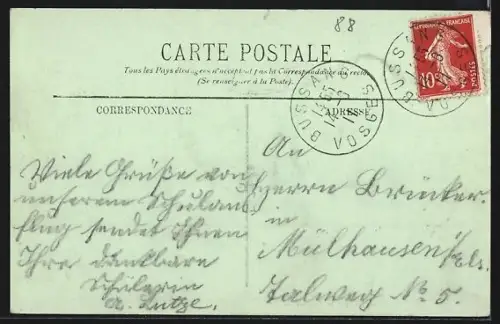 88
CARTE POSTALE
Tous les Pays étrangers n'acceptent pas la Correspondance au recto
(Se renseigner à la Poste).
CORRESPONDANCE
ADRESSE
BUSSANG
VOSGES
10c
Viele Grüße von
unserem Schulaus
flug sendet Ihnen
Ihre dankbare
Schülerin
A. Lutze.
An
Herrn Brücker
in
Mülhausen i/Els.
Talweg No 5.